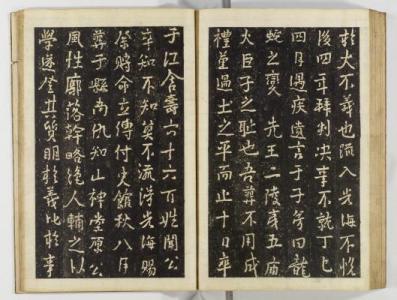 於大不義也流入先海不悅
後四年拜判決事不就丁巳
四月遇疾遺言于子等曰龍
蛇之變 先王二陵芽五廟
火臣子之恥也吾葬不用成
禮並過土之平而止十日卒
于江舍壽六十六百姓聞公
卒知不知莫不流涕先海賜
祭贈命立傳付史館秋八月
葬于縣南仇知山神堂原公
風性廓落幹略絕人輔之以
學遂登其質明於義比於事